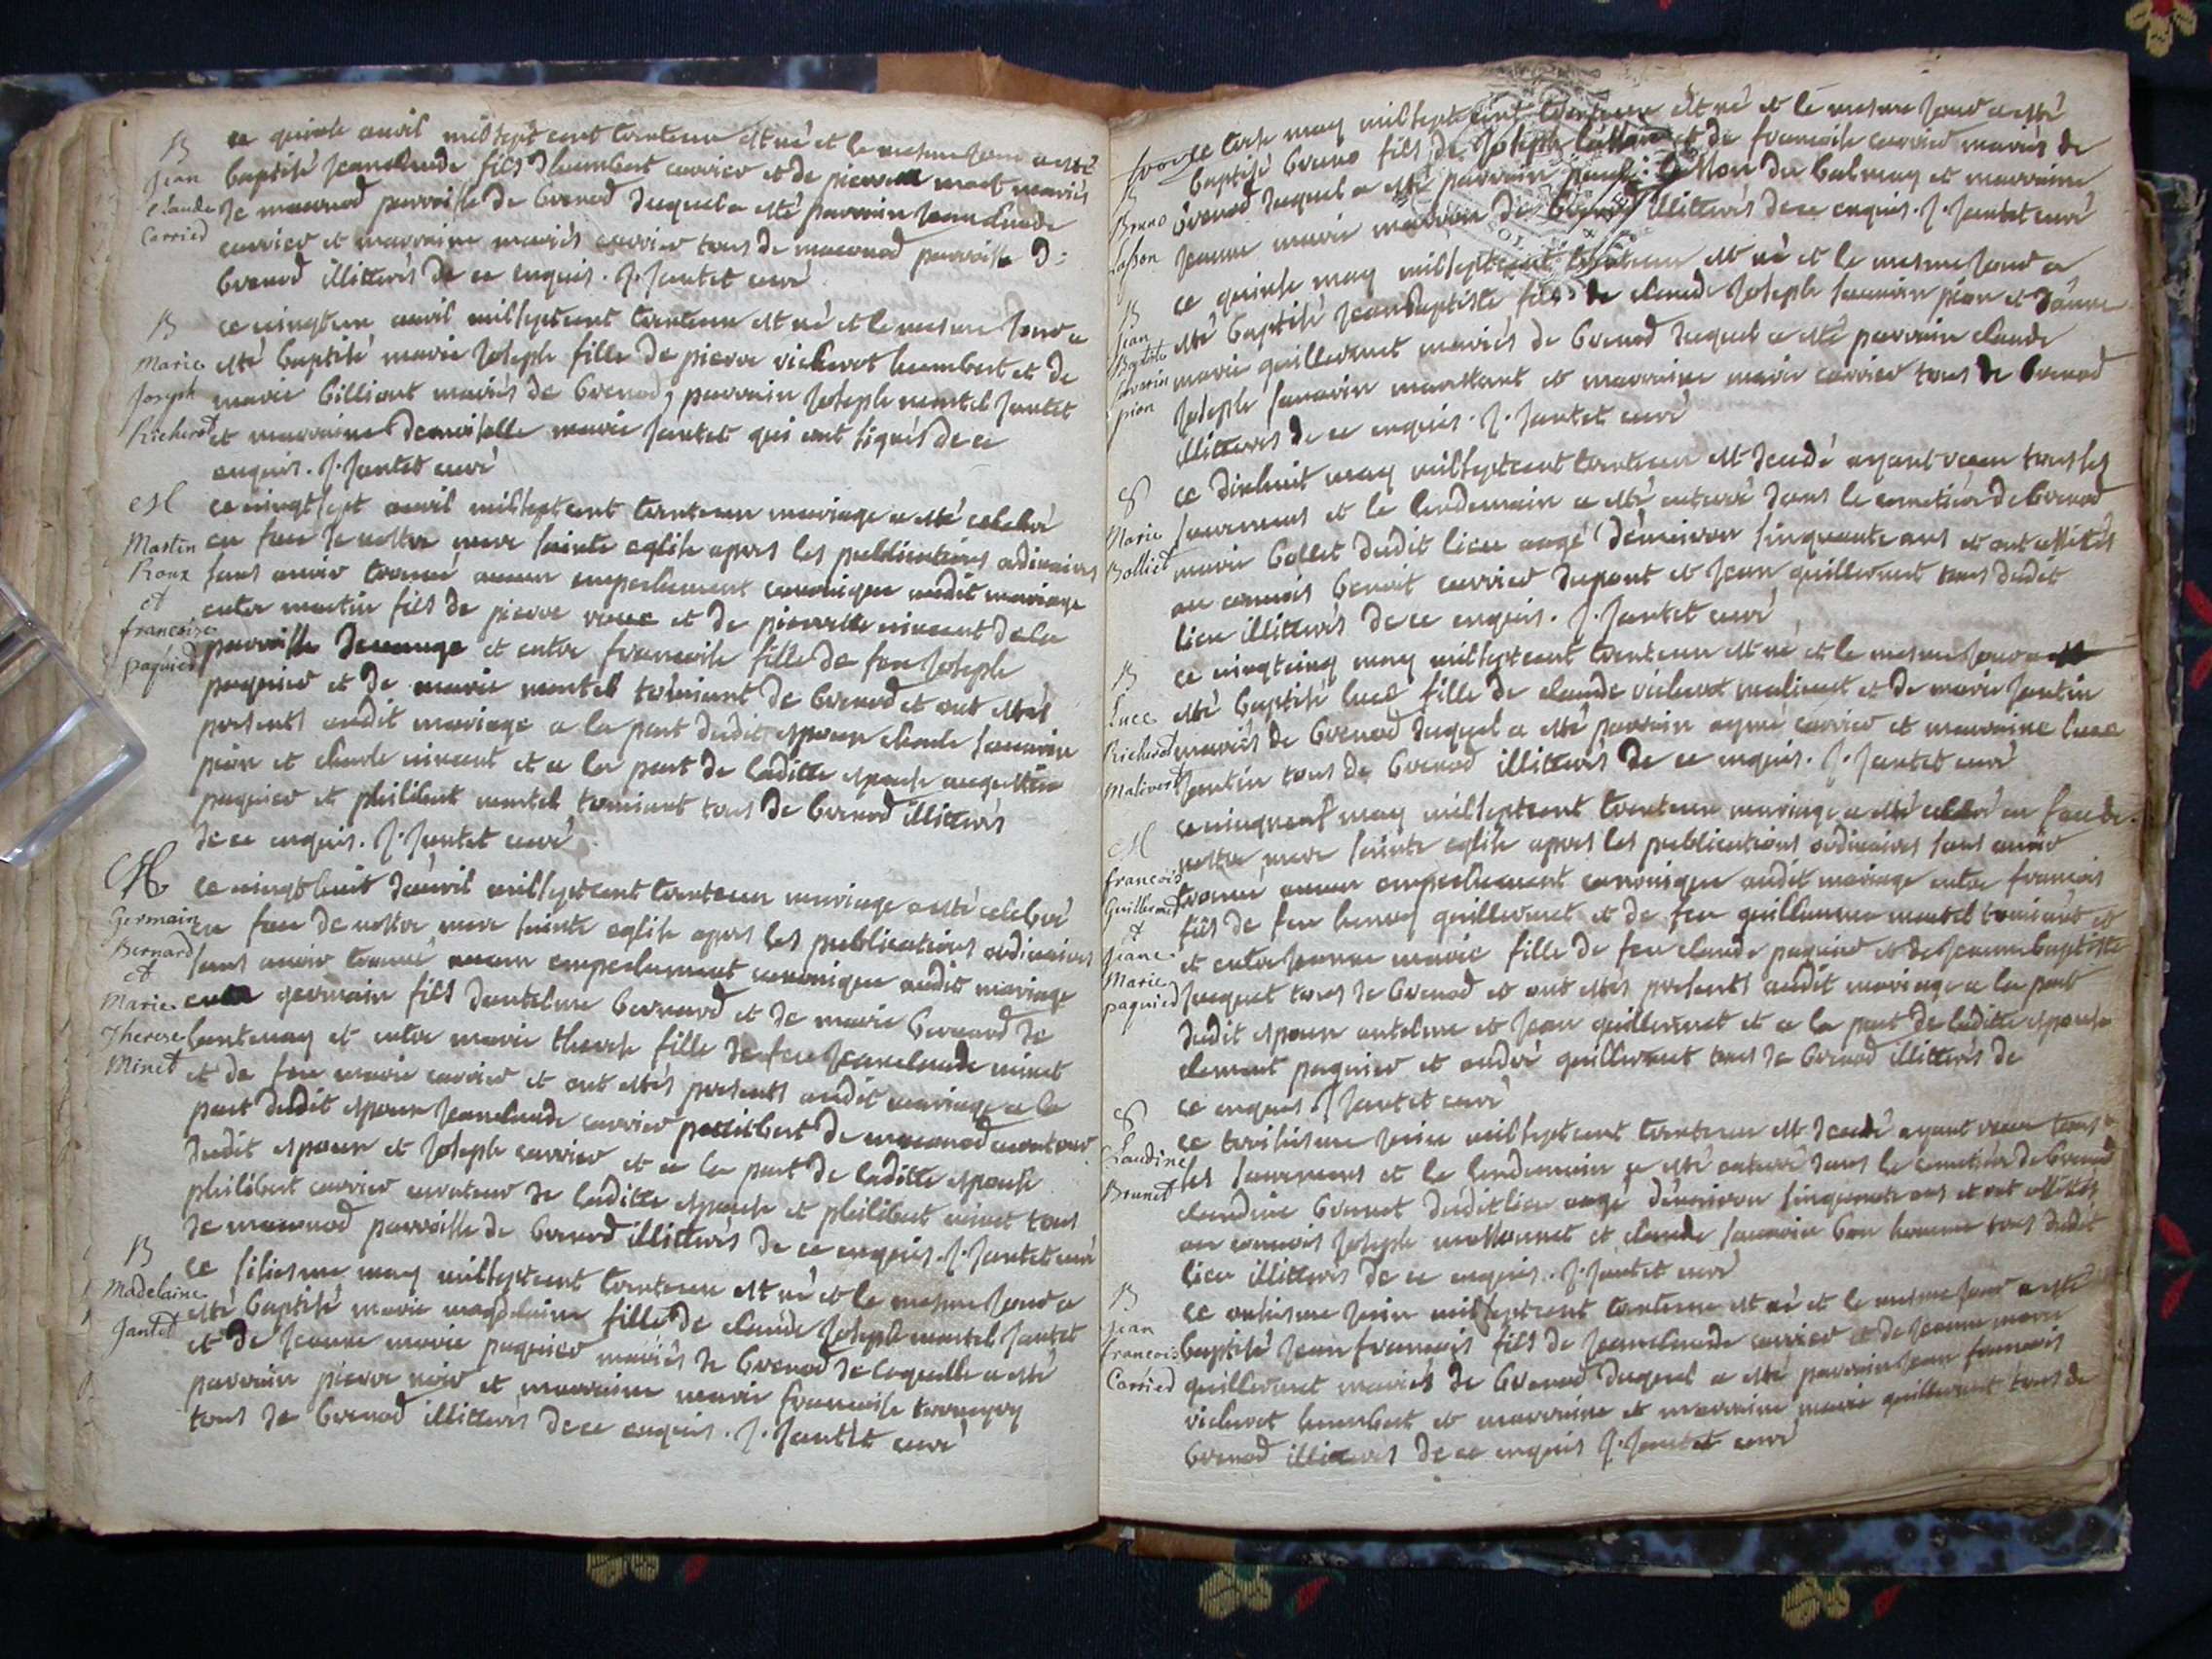 B
Jean
Claude
Carried
ce quinse auvil mil sept cent trenteun est né et le mesme jour a esté
baptisé jeanclaude fils dhumbert carrier et de pierrette mariés
de maconod parroisse de brenod duquel a esté parrain jeanclaude
carrier et marraine carrier tous de maconod parroisse de
brenod illitterés de ce enquis. J. Jantet curé
B
Marie
Joseph
Richerod
ce vingtun auvil milseptcent trenteun est né et le mesme jour a
esté baptisé marie joseph fille de pierre richerot humbert et de
marie billiont mariés de brenod, parrain joseph martel jantet
et marraine demoiselle marie jantet qui ont signés de ce
enquis. J. Jantet curé
M
Martin
Roux
et
francoise
paquied
ce vingtsept auvil milseptcent trenteun mariage a esté celebré
en face de nostre mere sainte eglise apres les publications ordinaires
sans auoir trouué aucun empechement canonique audit mariage
entre martin fils de pierre roux et de pierrette vincent de la
parroisse et entre francoise fille de feu joseph
paquier et de marie martel toiniant de brenod et ont estés
presents audit mariage a la part dudit epoux claude sauarin
pion et claude vincent et a la part de laditte epouse augustin
paquier et philibert martel toiniant tous de brenod illitterés
de ce enquis. J. Jantet curé
M
Germain
Bernard
et
Marie
Therese
Minet
ce vingthuit dauvril milseptcent trenteun mariage a esté celebré
en face de nostre mere sainte eglise apres les publications ordinaires
sans auoir trouué aucun empechement canonique audit mariage
entre germain fils dantelme bernard et de marie bernard de
lantenay et entre marie therese fille de feu jeanclaude minet
et de feu marie carrier et ont estés presents audit mariage a la
part dudit epoux jeanclaude carrier de maconod curateur
dudit epoux et joseph carrier et a la part de laditte epouse
philibert carrier curateur de laditte epouse et philibert minet tous
de maconod parroisse de brenod illitterés de ce enquis. J. Jantet curé
B
Madelaine
Jantet
ce sisiesme may milseptcent trenteun est né et le mesme jour a
esté baptisé marie magdelaine fille de claude joseph martel jantet
et de jeanne marie paquier mariés de brenod de laquelle a esté
parrain pierre noir et marraine marie francoise
tous de brenod illitterés de ce enquis. J. Jantet curé
B
Bruno
Lasson
ce tresse may milseptcent trenteun est né et le mesme jour a esté
baptisé bruno fils de joseph et de francoise carrier mariés de
brenod duquel a esté parrain du balmay et marraine
jeanne marie de brenod illitterés de ce enquis. J. Jantet curé
B
Jean
Baptiste
Savarin
pion
ce quinse may milseptcent trenteun est né et le mesme jour a
esté baptisé jeanbaptiste fils de claude joseph sauarin pion et danne
marie guillermet mariés de brenod duquel a esté parrain claude
joseph sauarin et marraine marie carrier tous de brenod
illitterés de ce enquis. J. Jantet curé
S
Marie
Bolliet
ce dixhuit may milseptcent trenteun est decedé ayant receu tous les
sacremens et le lendemain a esté enterré dans le cemetiere de brenod
marie bollet dudit lieu aagé denuiron sinquante ans et ont assistés
au conuois benoit carrier dupont et jean guillermet tous dudit
lieu illitterés de ce enquis. J. Jantet curé
B
Luce
Richerod
Malivert
ce vingtcinq may milseptcent trenteun est né et le mesme jour a
esté baptisé luce fille de claude richerot maliuert et de marie jantin
mariés de brenod duquel a esté parrain aymé carrier et marraine luce
jantin tous de brenod illitterés de ce enquis. J. Jantet curé
M
francois
Guillermet
et
Jeane
Marie
paquied
ce vingneuf may milseptcent trenteun mariage a esté celebré en face de
nostre mere sainte eglise apres les publications ordinaires sans auoir
trouué aucun empechement canonique audit mariage entre francois
fils de feu henry guillermet et de feu guillemine martel toiniant et
et entre jeanne marie fille de feu claude paquier et de jeanne baptiste
jacquet tous de brenod et ont estés presents audit mariage a la part
dudit epoux antelme et jean guillermet et a la part de laditte epouse
clement paquier et andré guillermet tous de brenod illitterés de
ce enquis J Jantet curé
S
Claudine
Brunet
ce troisiesme juin milseptcent trenteun est decedé ayant receu tous
les sacremens et le lendemain a esté enterré dans le cemetiere de brenod
claudine brunet dudit lieu aagé denuiron sinquante ans et ont assistés
au conuois joseph et claude sauarin bon homme tous dudit
lieu illitterés de ce enquis. J. Jantet curé
B
Jean
francois
Carried
ce onsiesme juin milseptcent trenteun est né et le mesme jour a esté
baptisé jean francois fils de jeanclaude carrier et de jeanne marie
guillermet mariés de brenod duquel a esté parrain jean francois
richerot humbert et marraine et marraine marie guillermet tous de
brenod illitterés de ce enquis J. Jantet curé